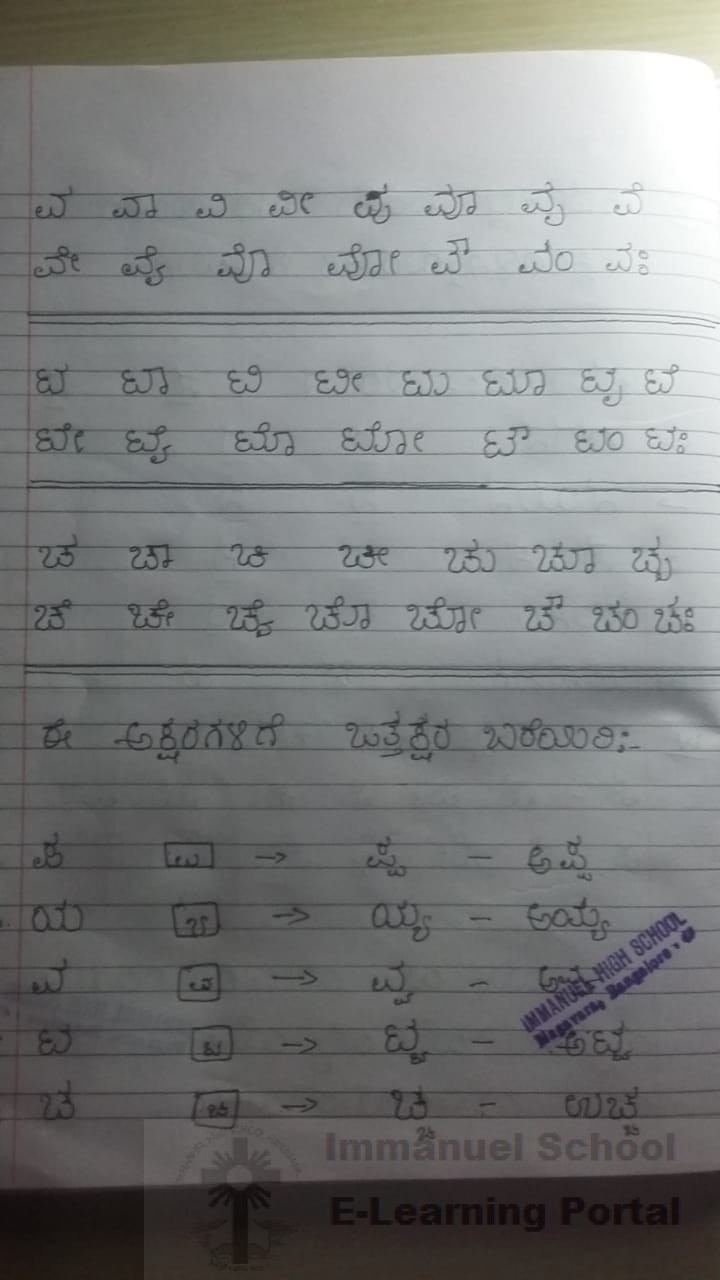 ವ ವಾ ವಿ ವೀ ವು ವೂ ವೃ ವೆ
ವೇ ವೈ ವೊ ವೋ ವೌ ವಂ ವಃ
ಟ ಟಾ ಟಿ ಟೀ ಟು ಟೂ ಟೃ ಟೆ
ಟೇ ಟೈ ಟೊ ಟೋ ಟೌ ಟಂ ಟಃ
ಚ ಚಾ ಚಿ ಚೀ ಚು ಚೂ ಚೃ
ಚೆ ಚೇ ಚೈ ಚೊ ಚೋ ಚೌ ಚಂ ಚಃ
ಈ ಅಕ್ಷರಗಳಿಗೆ ಒತ್ತಕ್ಷರ ಬರೆಯಿರಿ:-
ಪ ್ಪ → ಪ್ಪ – ಅಪ್ಪ
ಯ ್ಯ → ಯ್ಯ – ಅಯ್ಯ
ವ ್ವ → ವ್ವ – ಅವ್ವ
ಟ ್ಟ → ಟ್ಟ – ಅಟ್ಟ
ಚ ್ಚ → ಚ್ಚ – ಉಚ್ಚ
IMMANUEL HIGH SCHOOL
Nagavara, Bangalore
Immanuel School
E-Learning Portal